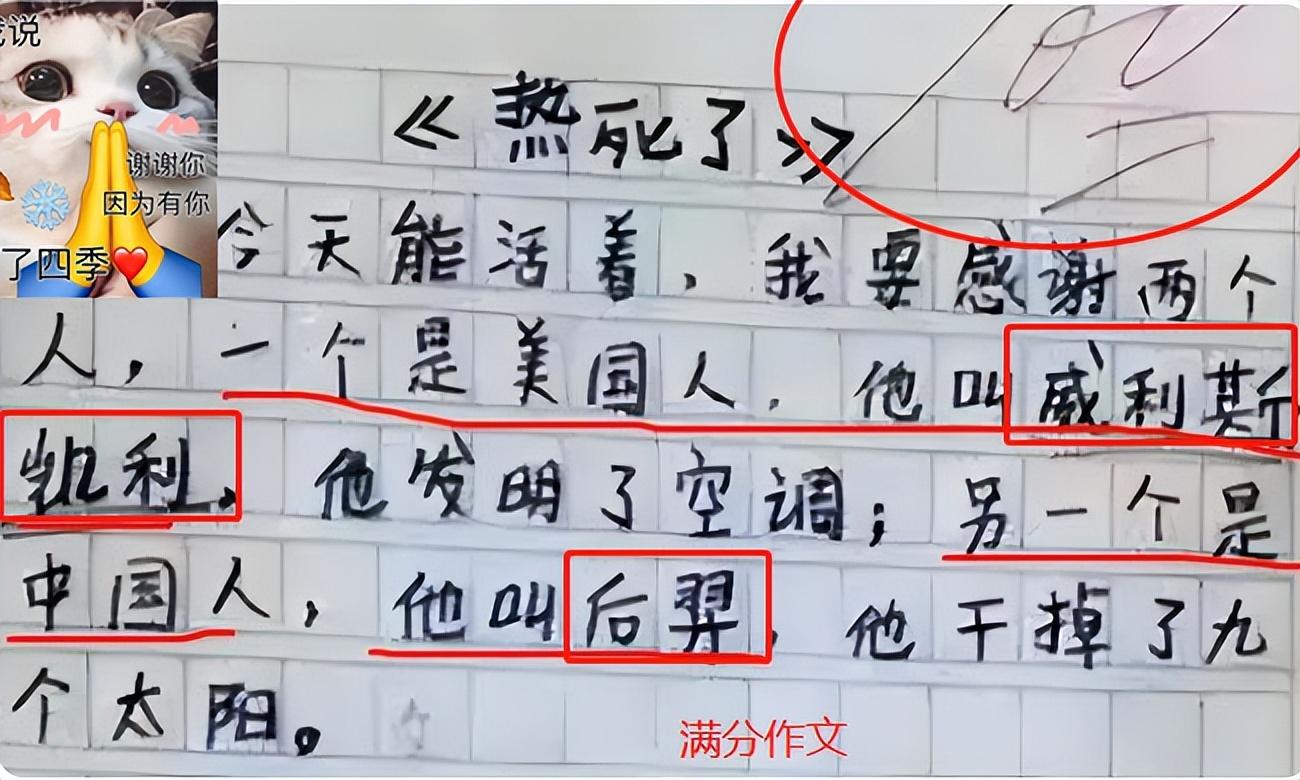 我说
谢谢你
因为有你
了四季
100
《热死了》
今天能活着，我要感谢两个
人，一个是美国人，他叫威利斯
凯利，他发明了空调；另一个是
中国人，他叫后羿，他干掉了九
个太阳。
满分作文